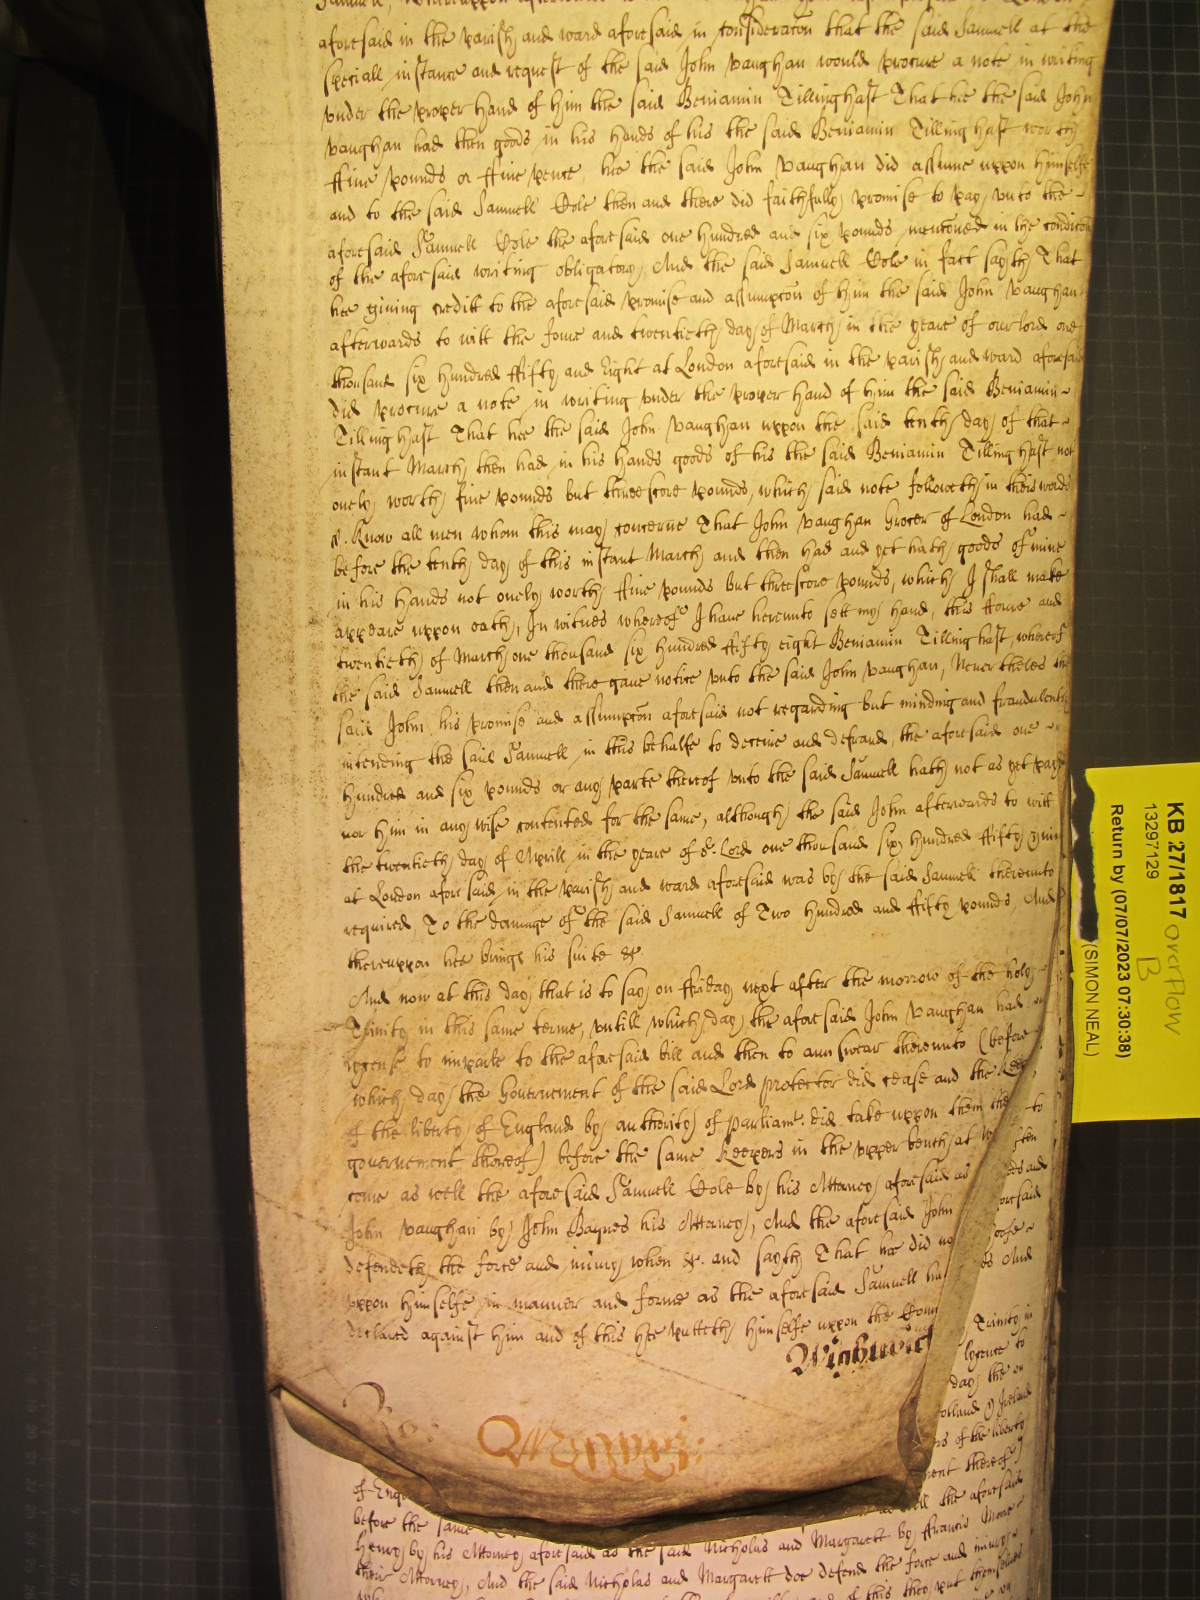 aforesaid in the parish and ward aforesaid in consideracon that the said Samuell at the
speciall instance and request of the said John Vaughan would procure a note in writing
vnder the proper hand of him the said Beniamin Tillinghast That hee the said John
Vaughan had then goods in his hands of his the said Beniamin Tillinghast worth
ffiue pounds or ffiue pence, hee the said John Vaughan did assume vppon himselfe
and to the said Samuell Cole then and there did faithfully promise to pay vnto the
aforesaid Samuell Cole the aforesaid one hundred and six pounds menconed in the condicon
of the aforesaid writing obligatory, And the said Samuell Cole in fact sayth That
hee giuing creditt to the aforesaid promise and assumpcon of him the said John Vaughan
afterwards to witt the foure and twentieth day of March in the yeare of our lord one
thousand six hundred ffifty and eight at London aforesaid in the parish and ward aforesaid
did procure a note in writing vnder the proper hand of him the said Beniamin
Tillinghast That hee the said John Vaughan vppon the said tenth day of that
instant March then had in his hands goods of his the said Beniamin Tillinghast not
onely worth fiue pounds but threescore pounds, which said note followeth in theis words
Know all men whom this may concerne That John Vaughan Grocer of London had
before the tenth day of this instant March and then had and yet hath goods of mine
in his hands not onely worth ffiue pounds but threescore pounds, which I shall make
appeare vppon oath, In witnes whereof I haue herevnto sett my hand, this ffoure and
twentieth of March one thousand six hundred ffifty eight Beniamin Tillinghast, whereof
the said Samuell then and there gaue notice vnto the said John Vaughan, Neuertheles the
said John his promise and assumpcon aforesaid not regarding but minding and fraudulently
intending the said Samuell in this behalfe to deceiue and defraud, the aforesaid one
hundred and six pounds or any parte thereof vnto the said Samuell hath not as yet payd
nor him in any wise contented for the same, although the said John afterwards to witt
the twentieth day of Aprill in the yeare of or. Lord one thousand six hundred ffifty nine
at London aforesaid in the parish and ward aforesaid was by the said Samuell therevnto
required, To the damage of the said Samuell of Two hundred and ffifty pounds And
therevppon hee brings his suite &c
And now at this day that is to say on ffriday next after the morrow of the holy
Trinity in this same terme, vntill which day the aforesaid John Vaughan had
lycense to imparle to the aforesaid bill and then to aunswear therevnto (before
which day the Gouernment of the said Lord protector did cease and the Keep
of the liberty of England by authority of parliamt. did take vppon them the
gouernement thereof) before the same Keepers in the vpper bench at
come as well the aforesaid Samuell Cole by his Attorney aforesaid as
John Vaughan by John Baynes his Attorney, And the aforesaid John
defendeth the force and iniury when &c. and sayth That hee did no
vppon himselfe in manner and forme as the aforesaid Samuell ha
declared against him and of this hee putteth himselfe vppon the Coun
to
aforesaid
And
Trinity in
lycence to
day the
rs of the liberty
ment thereof)
of Eng
before the same
well the aforesaid
Henry by his Attorney aforesaid as the said Nicholas and Margarett by ffrancis
their Attorney, And the said Nicholas and Margarett doe defend the force and iniury
of this they put themselues
KB 27/1817 overflow
B
13297129
Return by (07/07/2023 07:30:38)
(SIMON NEAL)